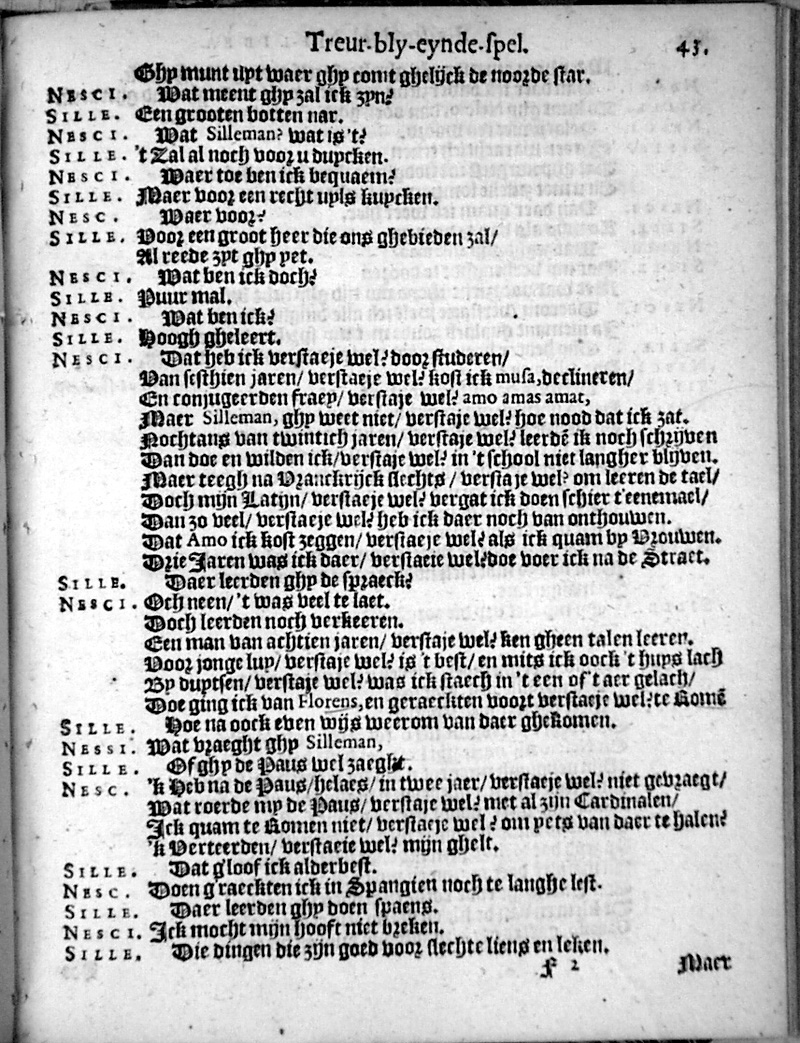 Treur-bly-eynde-spel. 43.
Ghy munt uyt waer ghy comt ghelijck de noorde star.
NESCI. Wat meent ghy zal ick zyn?
SILLE. Een grooten botten nar.
NESCI. Wat Silleman? wat is 't?
SILLE. 't Zal al noch voor u duycken.
NESCI. Waer toe ben ick bequaem?
SILLE. Maer voor een recht uyls kuycken.
NESC. Waer voor?
SILLE. Voor een groot heer die ons ghebieden zal/
Al reede zyt ghy yet.
NESCI. Wat ben ick doch?
SILLE. Puur mal.
NESCI. Wat ben ick?
SILLE. Hoogh gheleert.
NESCI. Dat heb ick verstaeje wel? door studeren/
Van sesthien jaren/ verstaeje wel? kost ick musa, declineren/
En conjugeerden fraey/ verstaje wel? amo amas amat,
Maer Silleman, ghy weet niet/ verstaje wel? hoe nood dat ick zat.
Nochtans van twintich jaren/ verstaje wel? leerdē ik noch schrijven
Dan doe en wilden ick/verstaje wel? in 't school niet langher blijven.
Maer teegh na Vranckrijck slechts / verstaje wel? om leeren de tael/
Doch mijn Latijn/ verstaeje wel? vergat ick doen schier t'eenemael/
Dan zo veel/ verstaeje wel? heb ick daer noch van onthouwen.
Dat Amo ick kost zeggen/ verstaeje wel? als ick quam by Vrouwen.
Drie Jaren was ick daer/ verstaeie wel? doe voer ick na de Straet.
SILLE. Daer leerden ghy de spraeck?
NESCI. Och neen/ 't was veel te laet.
Doch leerden noch verkeeren.
Een man van achtien jaren/ verstaje wel? ken gheen talen leeren.
Voor jonge luy/ verstaje wel? is 't best/ en mits ick oock 't huys lach
By duytsen/ verstaje wel? was ick staech in 't een of 't aer gelach/
Doe ging ick van Florens, en geraeckten voort verstaeje wel? te Romē
SILLE. Hoe na oock even wijs weerom van daer ghekomen.
NESSI. Wat vraeght ghy Silleman,
SILLE. Of ghy de Paus wel zaeght.
NESC. 'k Heb na de Paus/helaes/ in twee jaer/ verstaeje wel? niet gevraegt/
Wat roerde my de Paus/ verstaje wel? met al zijn Cardinalen/
Ick quam te Romen niet/ verstaeje wel? om yets van daer te halen?
'k Verteerden/ verstaeie wel? mijn ghelt.
SILLE. Dat g'loof ick alderbest.
NESC. Doen g'raeckten ick in Spangien noch te langhe lest.
SILLE. Daer leerden ghy doen spaens.
NESCI. Ick mocht mijn hooft niet breken.
SILLE. Die dingen die zijn goed voor slechte liens en leken.
F 2 Maer